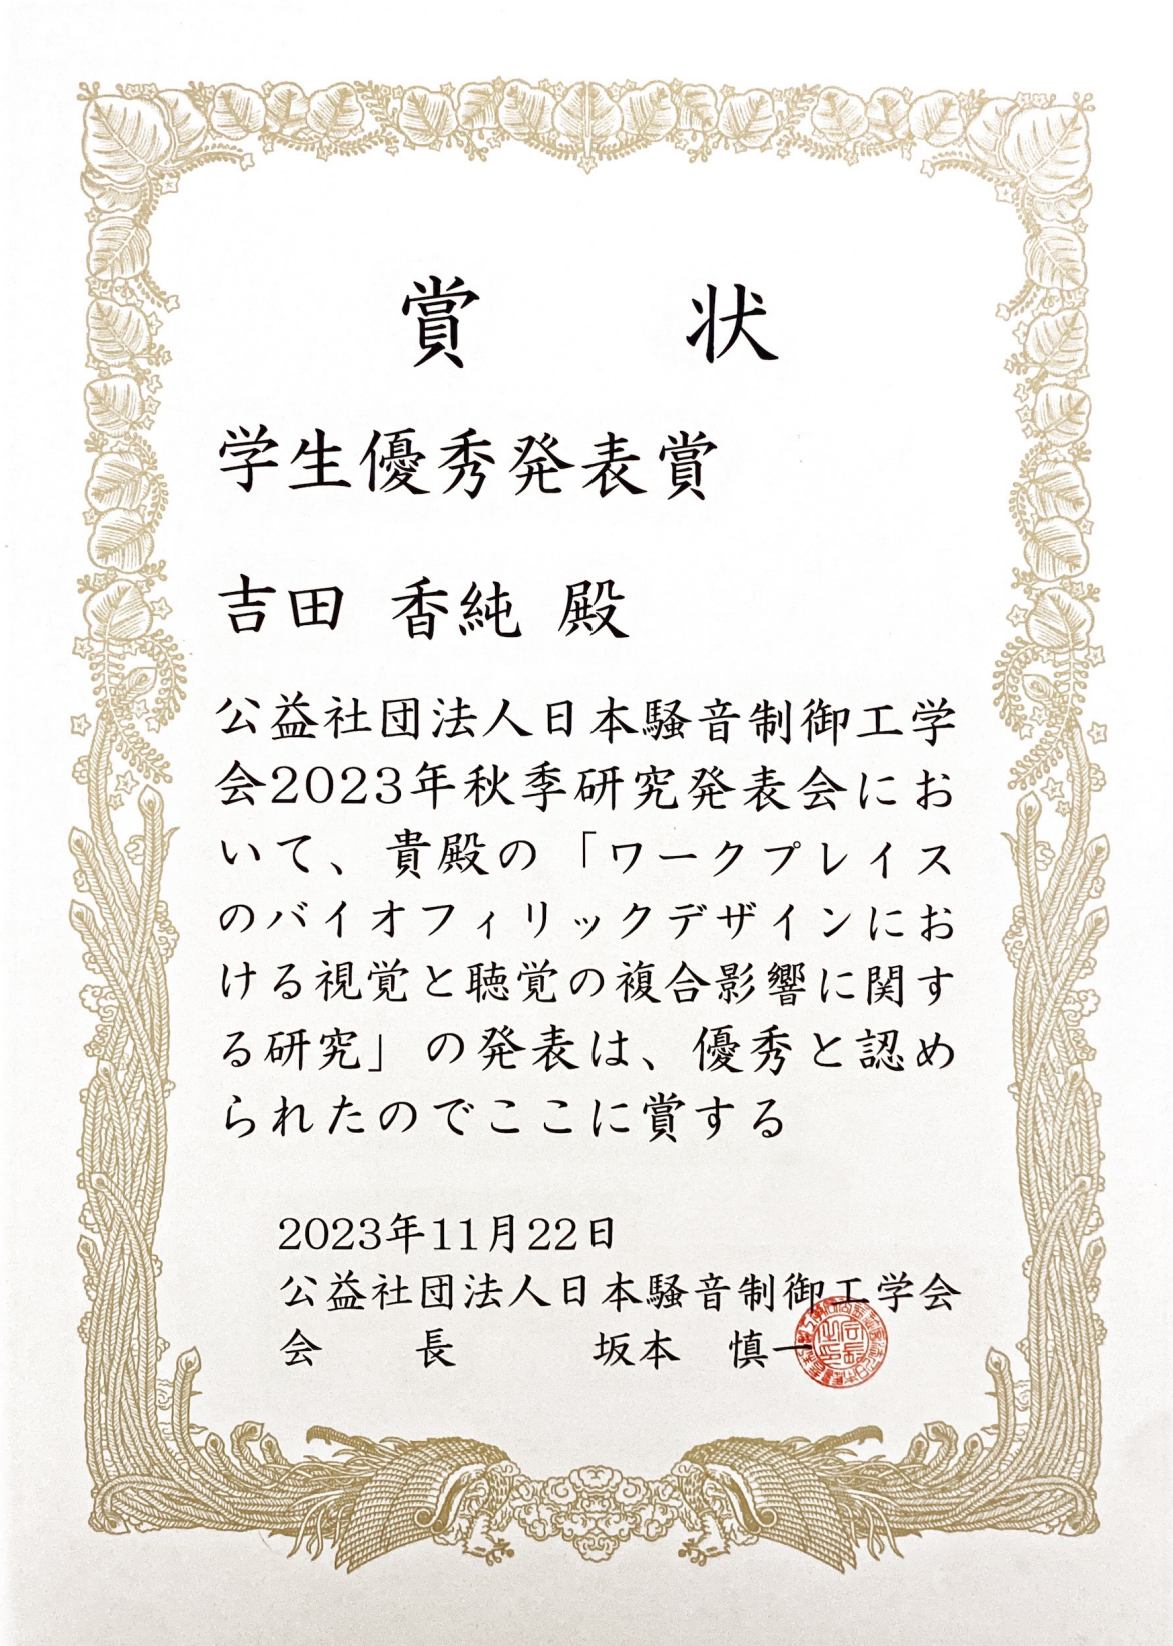 賞状
学生優秀発表賞
吉田 香純 殿
公益社団法人日本騒音制御工学
会2023年秋季研究発表会にお
いて、貴殿の「ワークプレイス
のバイオフィリックデザインにお
ける視覚と聴覚の複合影響に関す
る研究」の発表は、優秀と認め
られたのでここに賞する
2023年11月22日
公益社団法人日本騒音制御工学会
会長 坂本 慎一